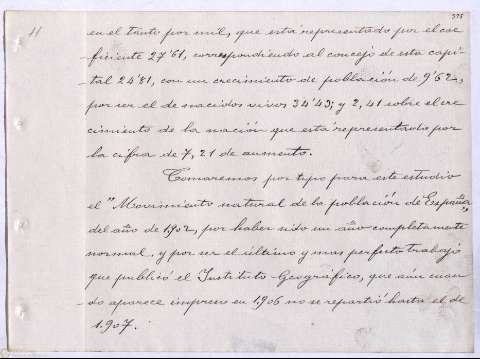 11
375
en el tanto por mil, que está representado por el coe-
-ficiente 27'61, correspondiendo al concejo de esta capi-
-tal 24'81, con un crecimiento de población de 9'62,
por ser el de nacidos vivos 34'43; y 2,41 sobre el cre-
-cimiento de la nación que está representado por
la cifra de 7,21 de aumento.
Tomaremos por tipo para este estudio
el "Movimiento natural de la población de España",
del año de 1902, por haber sido un año completamente
normal, y por ser el último y mas perfecto trabajo
que publicó el Instituto Geográfico, que aún cuan-
-do aparece impreso en 1906 no se repartió hasta el de
1.907.